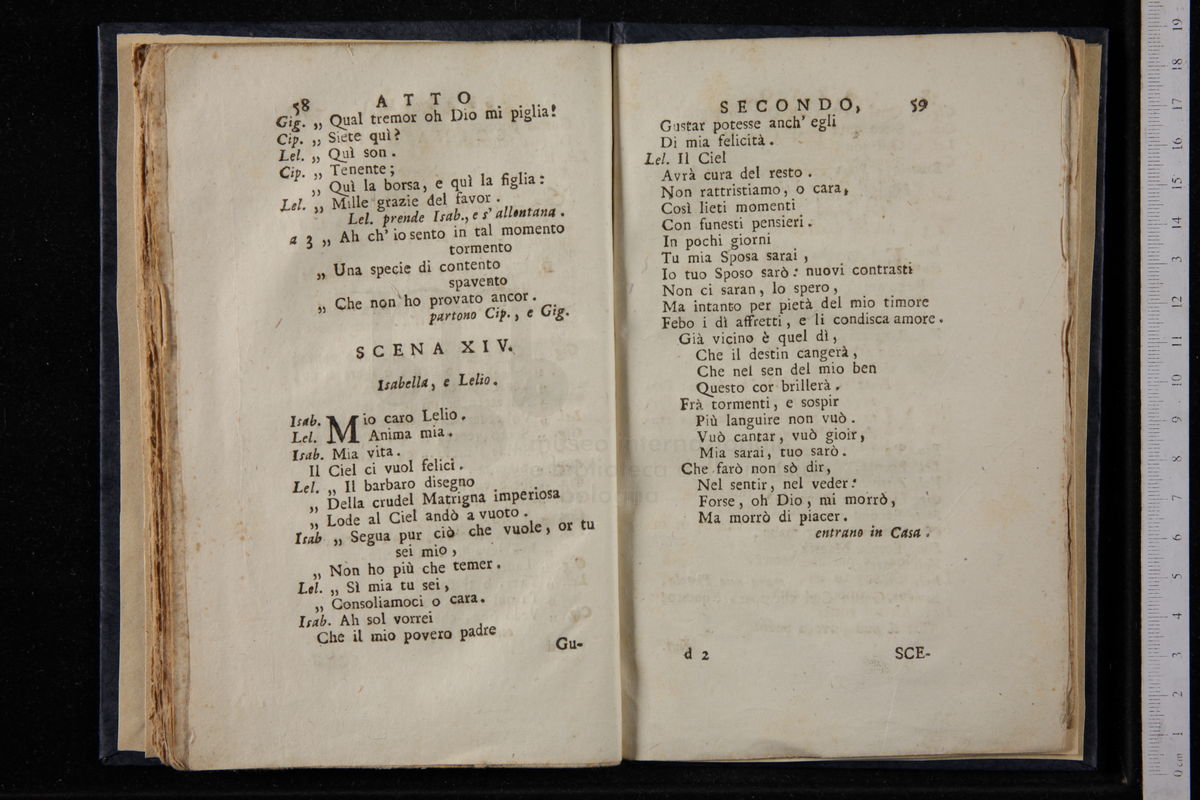 58 ATTO
Gig. „ Qual tremor oh Dio mi piglia!
Cip. „ Siete quì?
Lel. „ Quì son.
Cip. „ Tenente;
„ Quì la borsa, e quì la figlia:
Lel. „ Mille grazie del favor.
Lel. prende Isab., e s' allontana.
a 3 „ Ah ch' io sento in tal momento
tormento
„ Una specie di contento
spavento
„ Che non ho provato ancor.
partono Cip., e Gig.
SCENA XIV.
Isabella, e Lelio.
Isab. Mio caro Lelio.
Lel. Anima mia.
Isab. Mia vita.
Il Ciel ci vuol felici.
Lel. „ Il barbaro disegno
„ Della crudel Matrigna imperiosa
„ Lode al Ciel andò a vuoto.
Isab „ Segua pur ciò che vuole, or tu
sei mio,
„ Non ho più che temer.
Lel. „ Sì mia tu sei,
„ Consoliamoci o cara.
Isab. Ah sol vorrei
Che il mio povero padre
Gu-
SECONDO, 59
Gustar potesse anch' egli
Di mia felicità.
Lel. Il Ciel
Avrà cura del resto.
Non rattristiamo, o cara,
Così lieti momenti
Con funesti pensieri.
In pochi giorni
Tu mia Sposa sarai,
Io tuo Sposo sarò: nuovi contrasti
Non ci saran, lo spero,
Ma intanto per pietà del mio timore
Febo i dì affretti, e li condisca amore.
Già vicino è quel dì,
Che il destin cangerà,
Che nel sen del mio ben
Questo cor brillerà.
Frà tormenti, e sospir
Più languire non vuò.
Vuò cantar, vuò gioir,
Mia sarai, tuo sarò.
Che farò non sò dir,
Nel sentir, nel veder:
Forse, oh Dio, mi morrò,
Ma morrò di piacer.
entrano in Casa.
d 2 SCE-